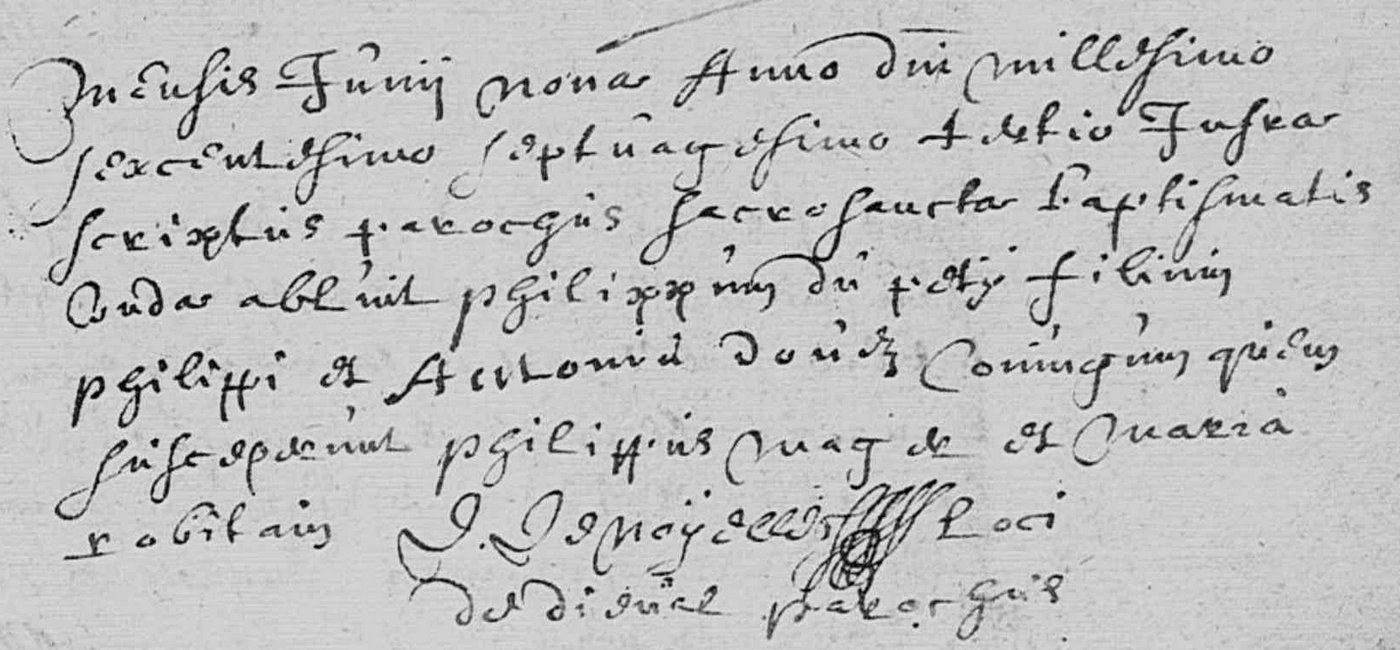 Mensis Junij nona Anno dni millesimo
sexcentesimo septuagesimo tertio Infra
scriptus parochus sacrosancta baptismatis
Unda abluit philippum du petij filium
philippi et Antonia douez Coniugum quem
susceperunt philippus mager et Maria
robitain D. Denoyelles Loci
de dieual parochus